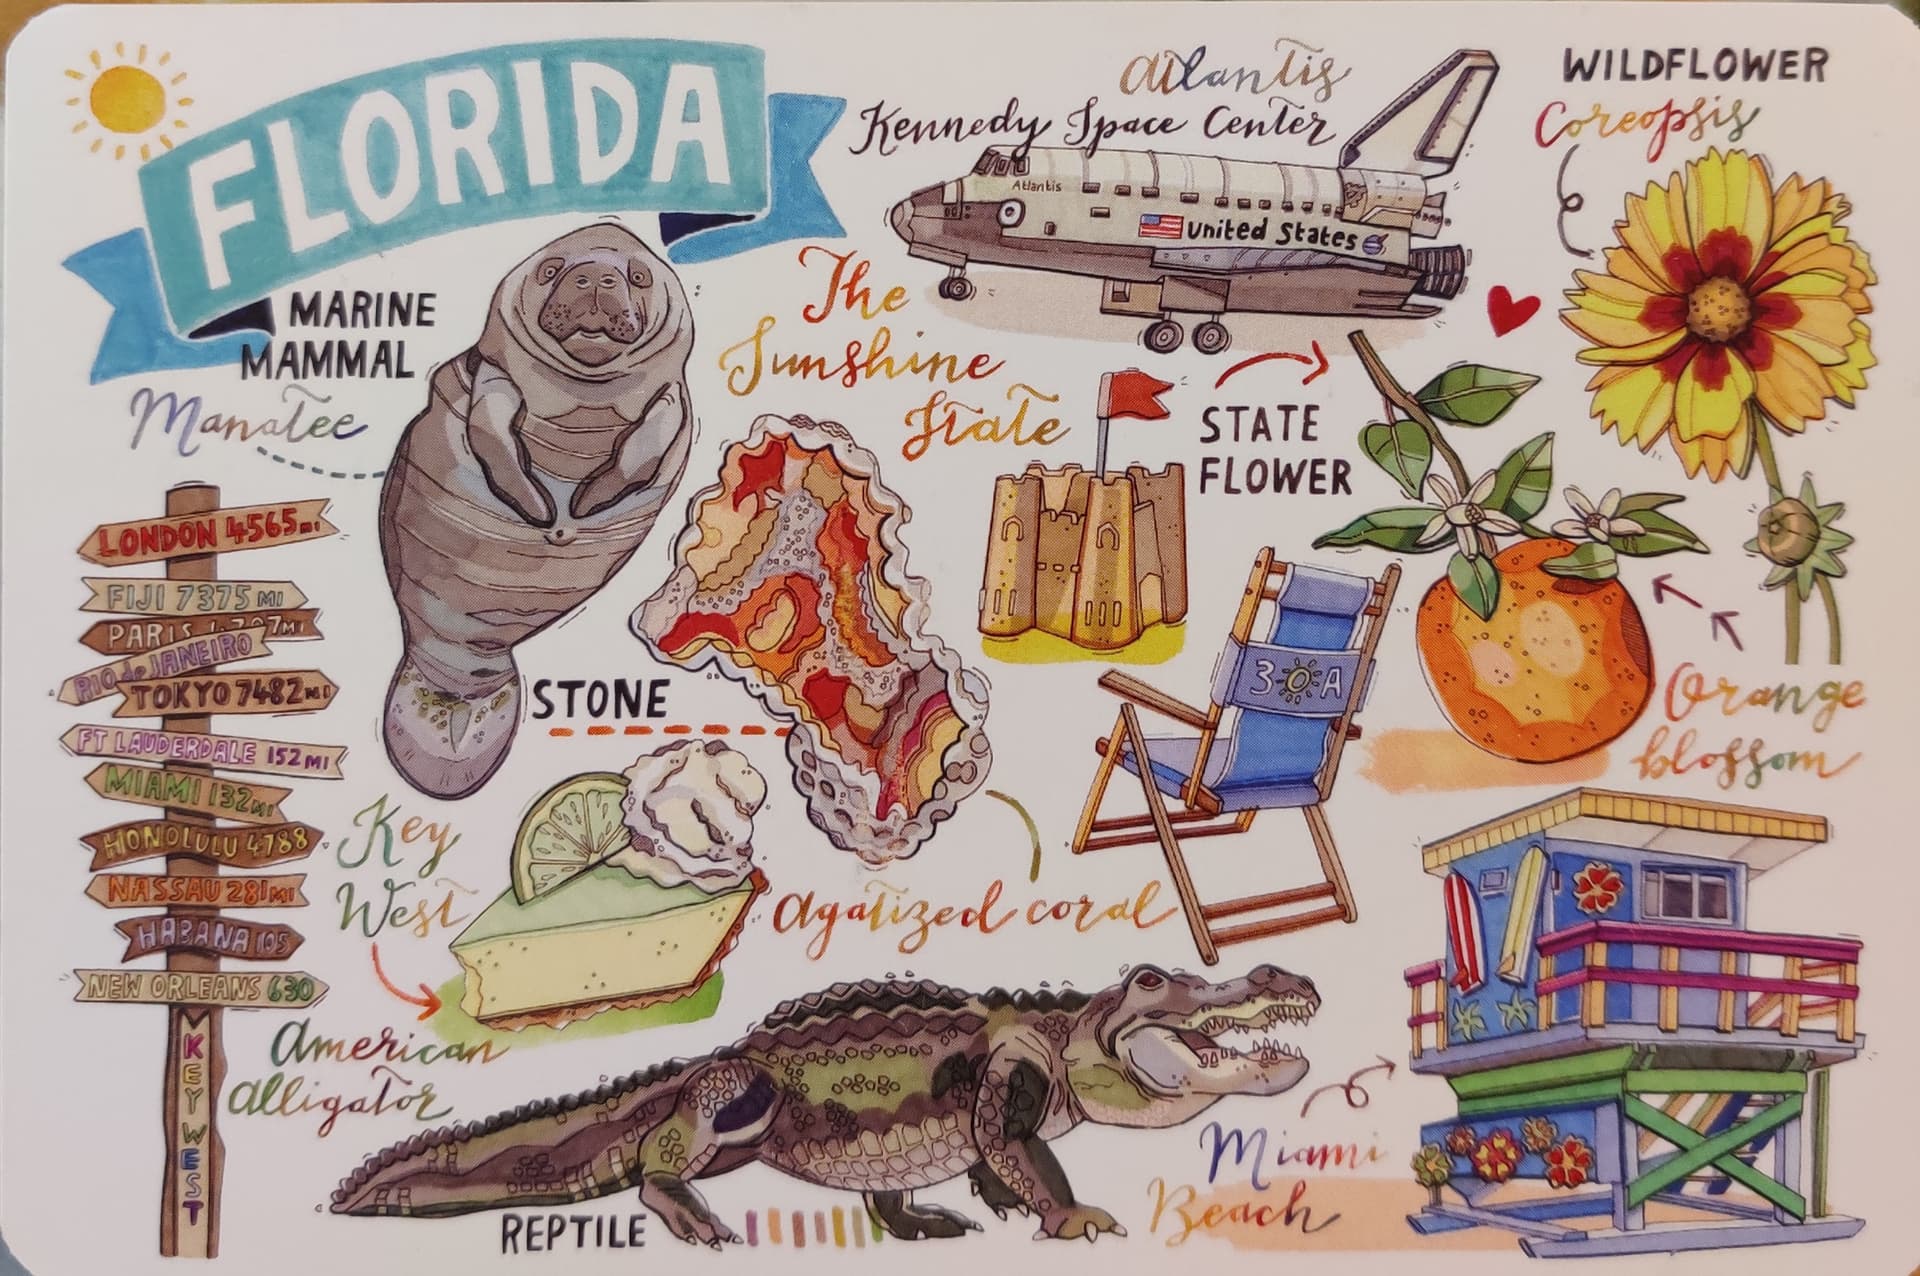 FLORIDA
Atlantis
Kennedy Space Center
Atlantis
United States
WILDFLOWER
Coreopsis
MARINE
MAMMAL
Manatee
The
Sunshine
State
STATE
FLOWER
Orange
blossom
STONE
Agatized coral
30A
LONDON 4565 mi
FIJI 7375 MI
PARIS
RIO de JANEIRO
TOKYO 7482 MI
FT LAUDERDALE 152 MI
MIAMI 132 MI
HONOLULU 4788
NASSAU 281 MI
HABANA 105
NEW ORLEANS 630
KEY WEST
Key
West
American
Alligator
REPTILE
Miami
Beach